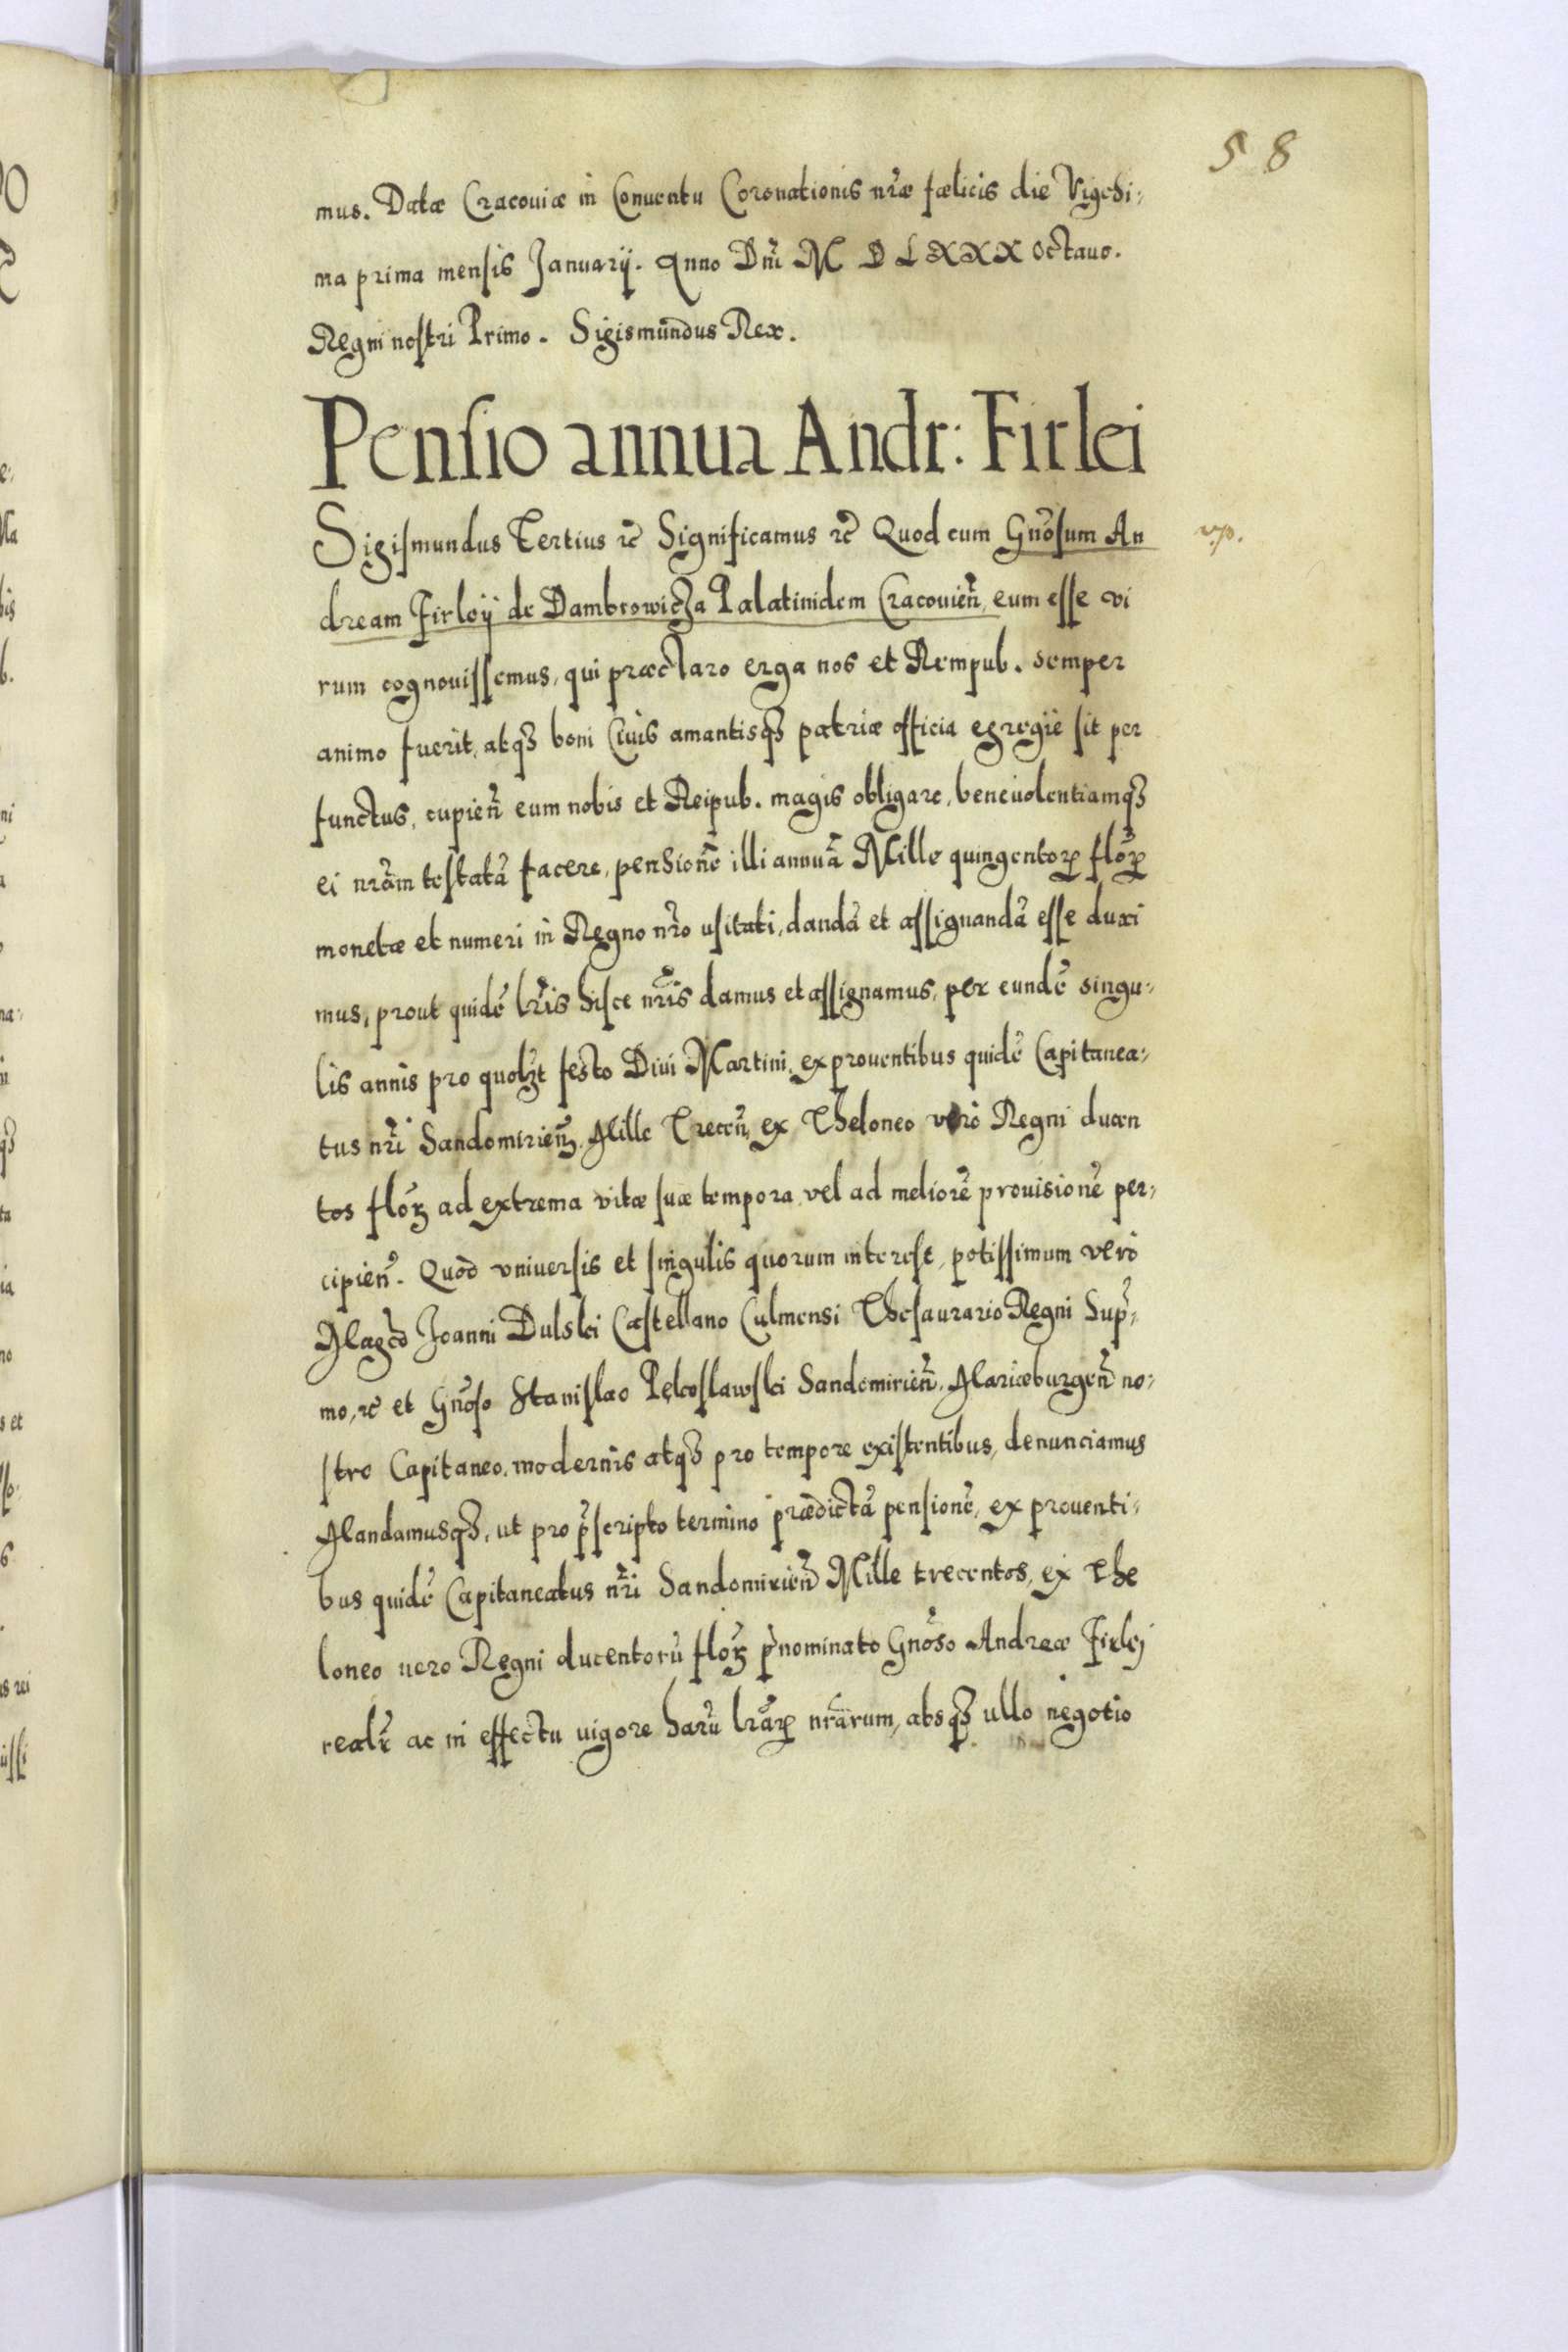 58
mus. Datæ Cracoviæ in Conuentu Coronationis nr̃æ fælicis die Vigesi-
ma prima mensis Januarij. Anno Dñi M D L XXX Octauo.
Regni nostri Primo. Sigismũndus Rex.
Pensio annua Andr: Firlei
Sigismundus Tertius etc̃ Significamus etc̃ Quod cum Gñosum An
dream Firleÿ de Dambrowicza Palatinidem Cracouień, eum esse vi
rum cognouissemus, qui præclaro erga nos et Rempub. semper
animo fuerit, atqꝫ boni Ciuis amantisqꝫ patriæ officia egregie sit per
functus, cupień eum nobis et Reipub. magis obligare, beneuolentiamqꝫ
ei nrãm testatã facere, pensionẽ illi annuã Mille quingentoꝝ floꝝ
monetæ et numeri in Regno nr̃o usitati, dandã et assignandã esse duxi
mus, prout quidẽ lr̃is hisce nr̃is damus et assignamus, per eundẽ singu-
lis annis pro quolꝫt festo Diui Martini, ex prouentibus quidẽ Capitanea-
tus nr̃i Sandomirień. Mille Trecẽn, ex Theloneo vero Regni ducen
tos floꝝ ad extrema vitæ suæ tempora vel ad meliorẽ prouisionẽ per-
cipień. Quod vniuersis et singulis quorum interest, potissimum vero
Magcõ Joanni Dulski Castellano Culmensi Thesaurario Regni Sup̃-
mo, etc̃ et Gñoso Stanislao Pękoslawski Sandomirień. Mariæburgeń no-
stro Capitaneo, modernis atqꝫ pro tempore existentibus, denunciamus
Mandamusqꝫ, ut pro p̃scripto termino prædictã pensionẽ, ex prouenti-
bus quidẽ Capitaneatus nr̃i Sandomirień Mille trecentos, ex The
loneo uero Regni ducentorũ floꝝ p̃nominato Gñoso Andreæ Firlej
realr̃ ac in effectu uigore harũ lrãꝝ nrãrum, absqꝫ ullo negotio